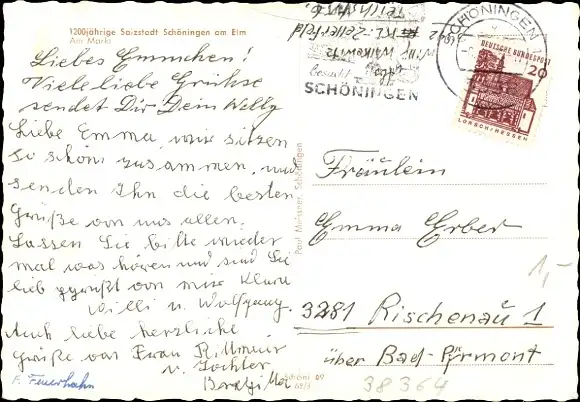 1200jährige Salzstadt Schöningen am Elm
Am Markt
Liebes Emmchen!
Viele liebe Grühse
sendet Dir Dein Willy
Liebe Emma, wir sitzen
so schön zusammen, und
senden Ihn die besten
Grüße von uns allen.
Lassen Sie bitte wieder
mal was hören und sind Sie
lieb gegrüßt von mir Klara
Willi u. Wolfgang.
Auch liebe herzliche
Grüße von Frau Rittmeier
u. Tochter
F. Feuerhahn
Schöni 09
Paul Meissner, Schöningen
Willy
Besucht
SCHÖNINGEN
SCHÖNINGEN
DEUTSCHE BUNDESPOST
20
LORSCH/HESSEN
Fräulein
Emma Erber
1,-
3281 Rischenau 1
über Bad-Pyrmont
38364